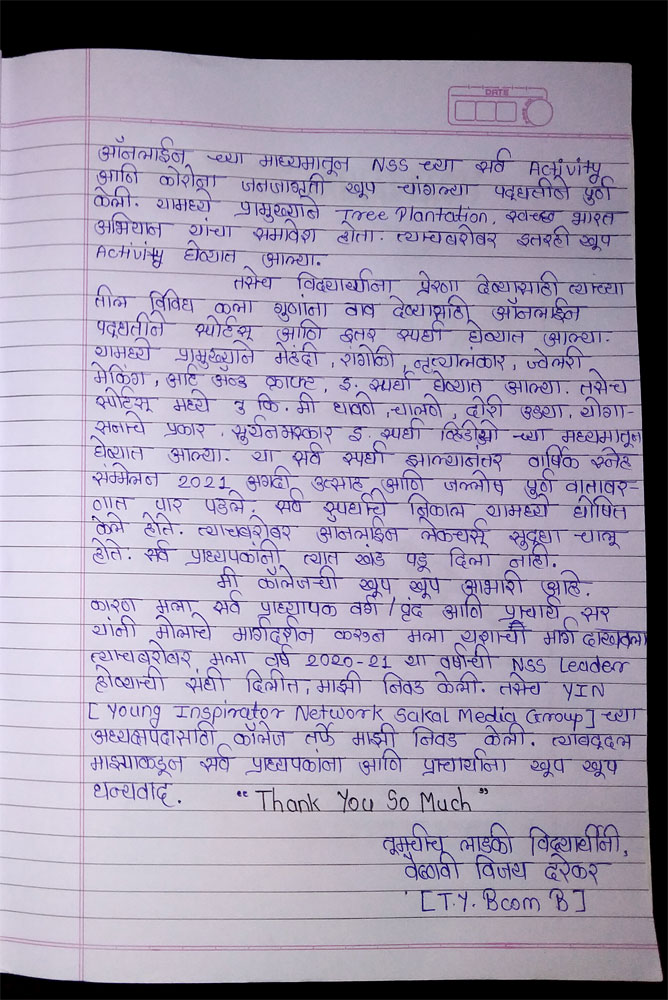 DATE
ऑनलाईन च्या माध्यमातून NSS च्या सर्व Activity
आणि कोरोना जनजागृती खूप चांगल्या पद्धतीने पूर्ण
केली. यामध्ये प्रामुख्याने Tree Plantation, स्वच्छ भारत
अभियान यांचा समावेश होता. त्याचबरोबर इतरही खूप
Activity घेण्यात आल्या.
तसेच विद्यार्थ्यांना प्रेरणा देण्यासाठी त्यांच्या
तील विविध कला गुणांना वाव देण्यासाठी ऑनलाईन
पद्धतीने स्पोर्टस् आणि इतर स्पर्धा घेण्यात आल्या.
यामध्ये प्रामुख्याने मेहंदी, रांगोळी, नृत्यालंकार, ज्वेलरी
मेकिंग, आर्ट अ‍ॅन्ड क्राफ्ट, इ. स्पर्धा घेण्यात आल्या. तसेच
स्पोर्टस् मध्ये 3 कि. मी धावणे, चालणे, दोरी उड्या, योगा-
सनाचे प्रकार, सूर्यनमस्कार इ स्पर्धा व्हिडीओ च्या मध्यमातून
घेण्यात आल्या. या सर्व स्पर्धा झाल्यानंतर वार्षिक स्नेह
संमेलन 2021 अगदी उत्साह आणि जल्लोष पुर्ण वातावर-
णात पार पडले. सर्व स्पर्धांचे निकाल यामध्ये घोषित
केले होते. त्याचबरोबर ऑनलाईन लेक्चर्स् सुद्धा चालू
होते. सर्व प्राध्यपकांनी त्यात खंड पडू दिला नाही.
मी कॉलेजची खूप खूप आभारी आहे.
कारण मला सर्व प्राध्यापक वर्ग / वृंद आणि प्राचार्य सर
यांनी मोलाचे मार्गदर्शन करून मला यशाचा मार्ग दाखवला
त्याचबरोबर मला वर्ष 2020-21 या वर्षाची NSS Leader
होण्याची संधी दिलीत, माझी निवड केली. तसेच YIN
[Young Inspirator Network Sakal Media Group] च्या
अध्यक्षपदासाठी कॉलेज तर्फे माझी निवड केली. त्याबद्दल
माझ्याकडून सर्व प्राध्यपकांना आणि प्राचार्यांना खूप खूप
धन्यवाद. "Thank You So Much"
तुमचीच लाडकी विद्यार्थीनी,
वैष्णवी विजय दरेकर
[T.Y. Bcom B]